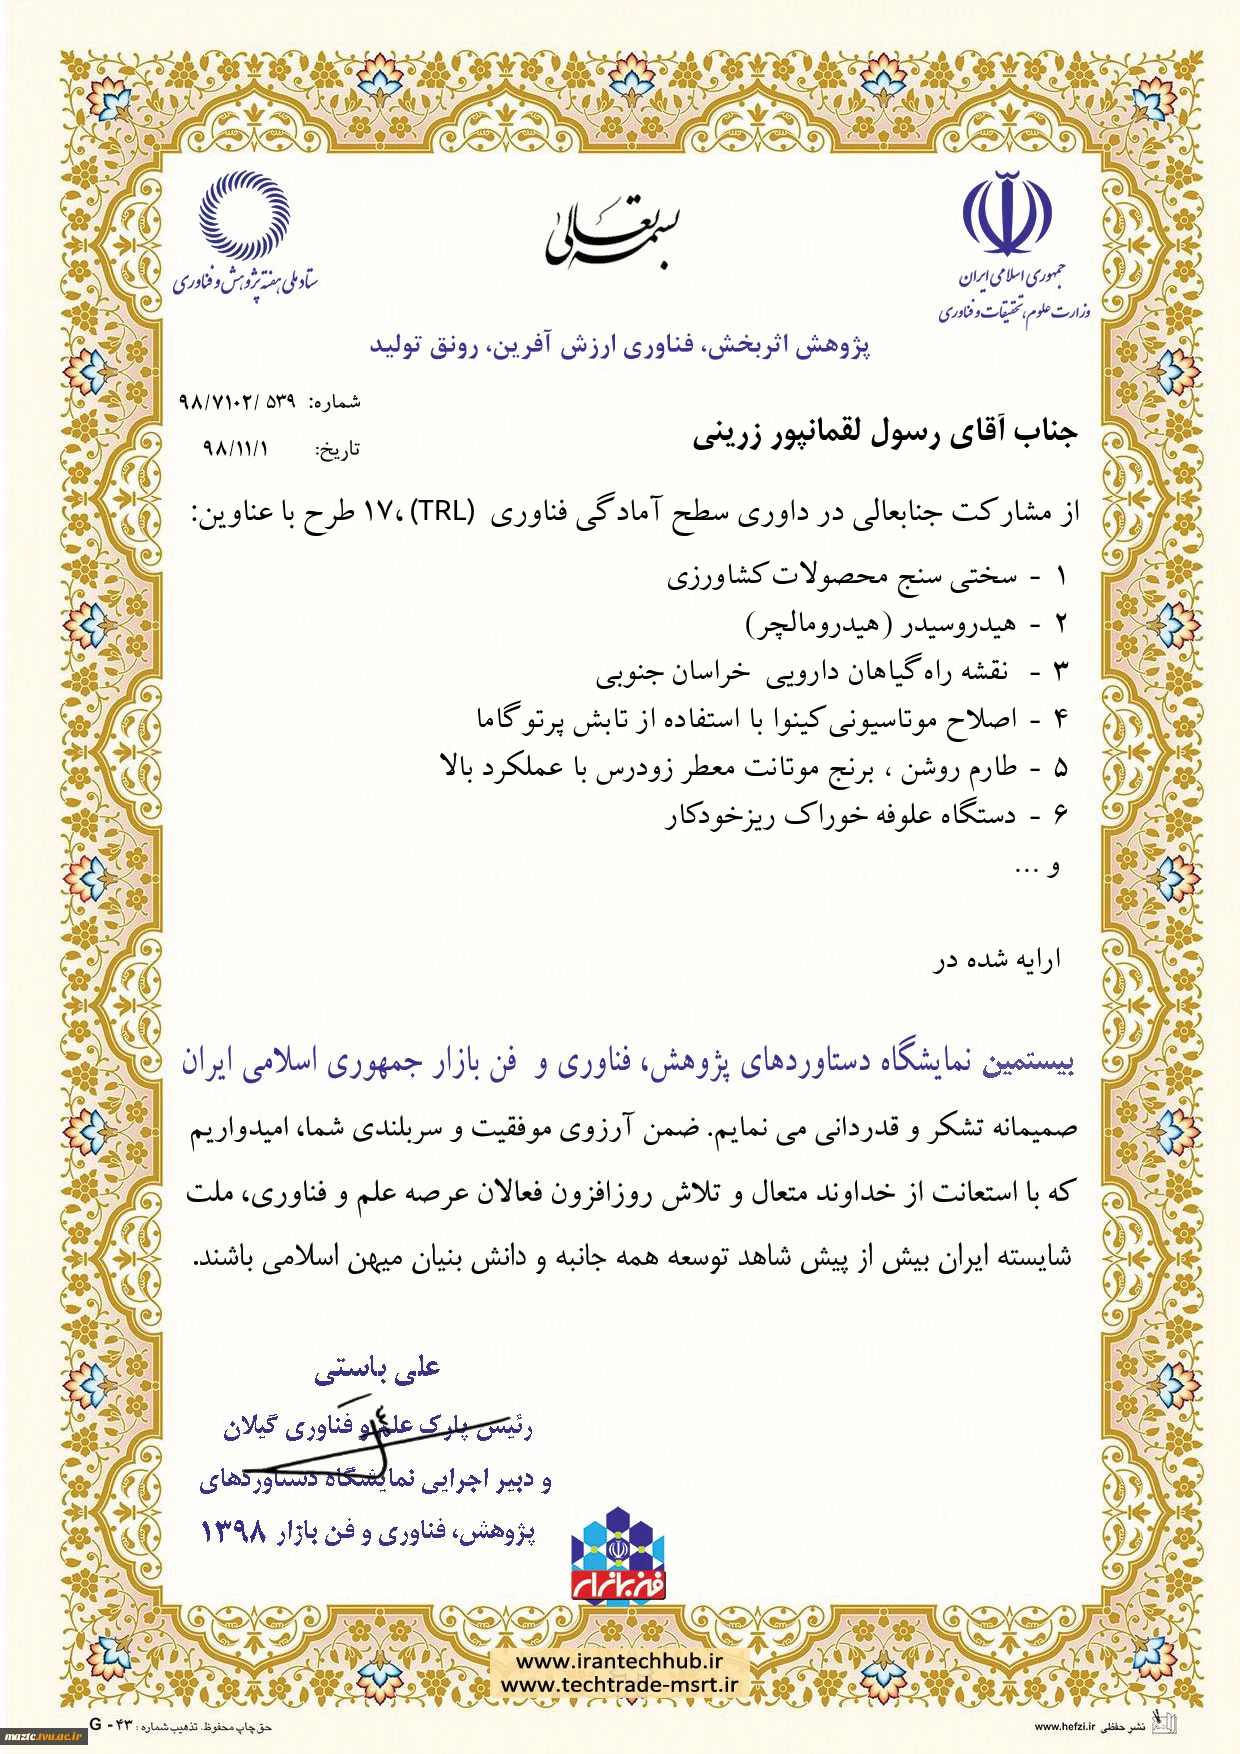 بسمه تعالی
جمهوری اسلامی ایران
وزارت علوم، تحقیقات و فناوری
ستاد ملی هفته پژوهش و فناوری
پژوهش اثربخش، فناوری ارزش آفرین، رونق تولید
شماره: ۵۳۹ /۹۸/۷۱۰۲
تاریخ: ۹۸/۱۱/۱
جناب آقای رسول لقمانپور زرینی
از مشارکت جنابعالی در داوری سطح آمادگی فناوری (TRL)، ۱۷ طرح با عناوین:
۱ - سختی سنج محصولات کشاورزی
۲ - هیدروسیدر (هیدرومالچر)
۳ - نقشه راه گیاهان دارویی خراسان جنوبی
۴ - اصلاح موتاسیونی کینوا با استفاده از تابش پرتو گاما
۵ - طارم روشن ، برنج موتانت معطر زودرس با عملکرد بالا
۶ - دستگاه علوفه خوراک ریزخودکار
و ...
ارایه شده در
بیستمین نمایشگاه دستاوردهای پژوهش، فناوری و فن بازار جمهوری اسلامی ایران
صمیمانه تشکر و قدردانی می نمایم. ضمن آرزوی موفقیت و سربلندی شما، امیدواریم
که با استعانت از خداوند متعال و تلاش روزافزون فعالان عرصه علم و فناوری، ملت
شایسته ایران بیش از پیش شاهد توسعه همه جانبه و دانش بنیان میهن اسلامی باشند.
علی باستی
رئیس پارک علم و فناوری گیلان
و دبیر اجرایی نمایشگاه دستاوردهای
پژوهش، فناوری و فن بازار ۱۳۹۸
فن بازار
www.irantechhub.ir
www.techtrade-msrt.ir
نشر حفظی www.hefzi.ir
حق چاپ محفوظ، تذهیب شماره : ۴۳ - G
mazic.tvu.ac.ir